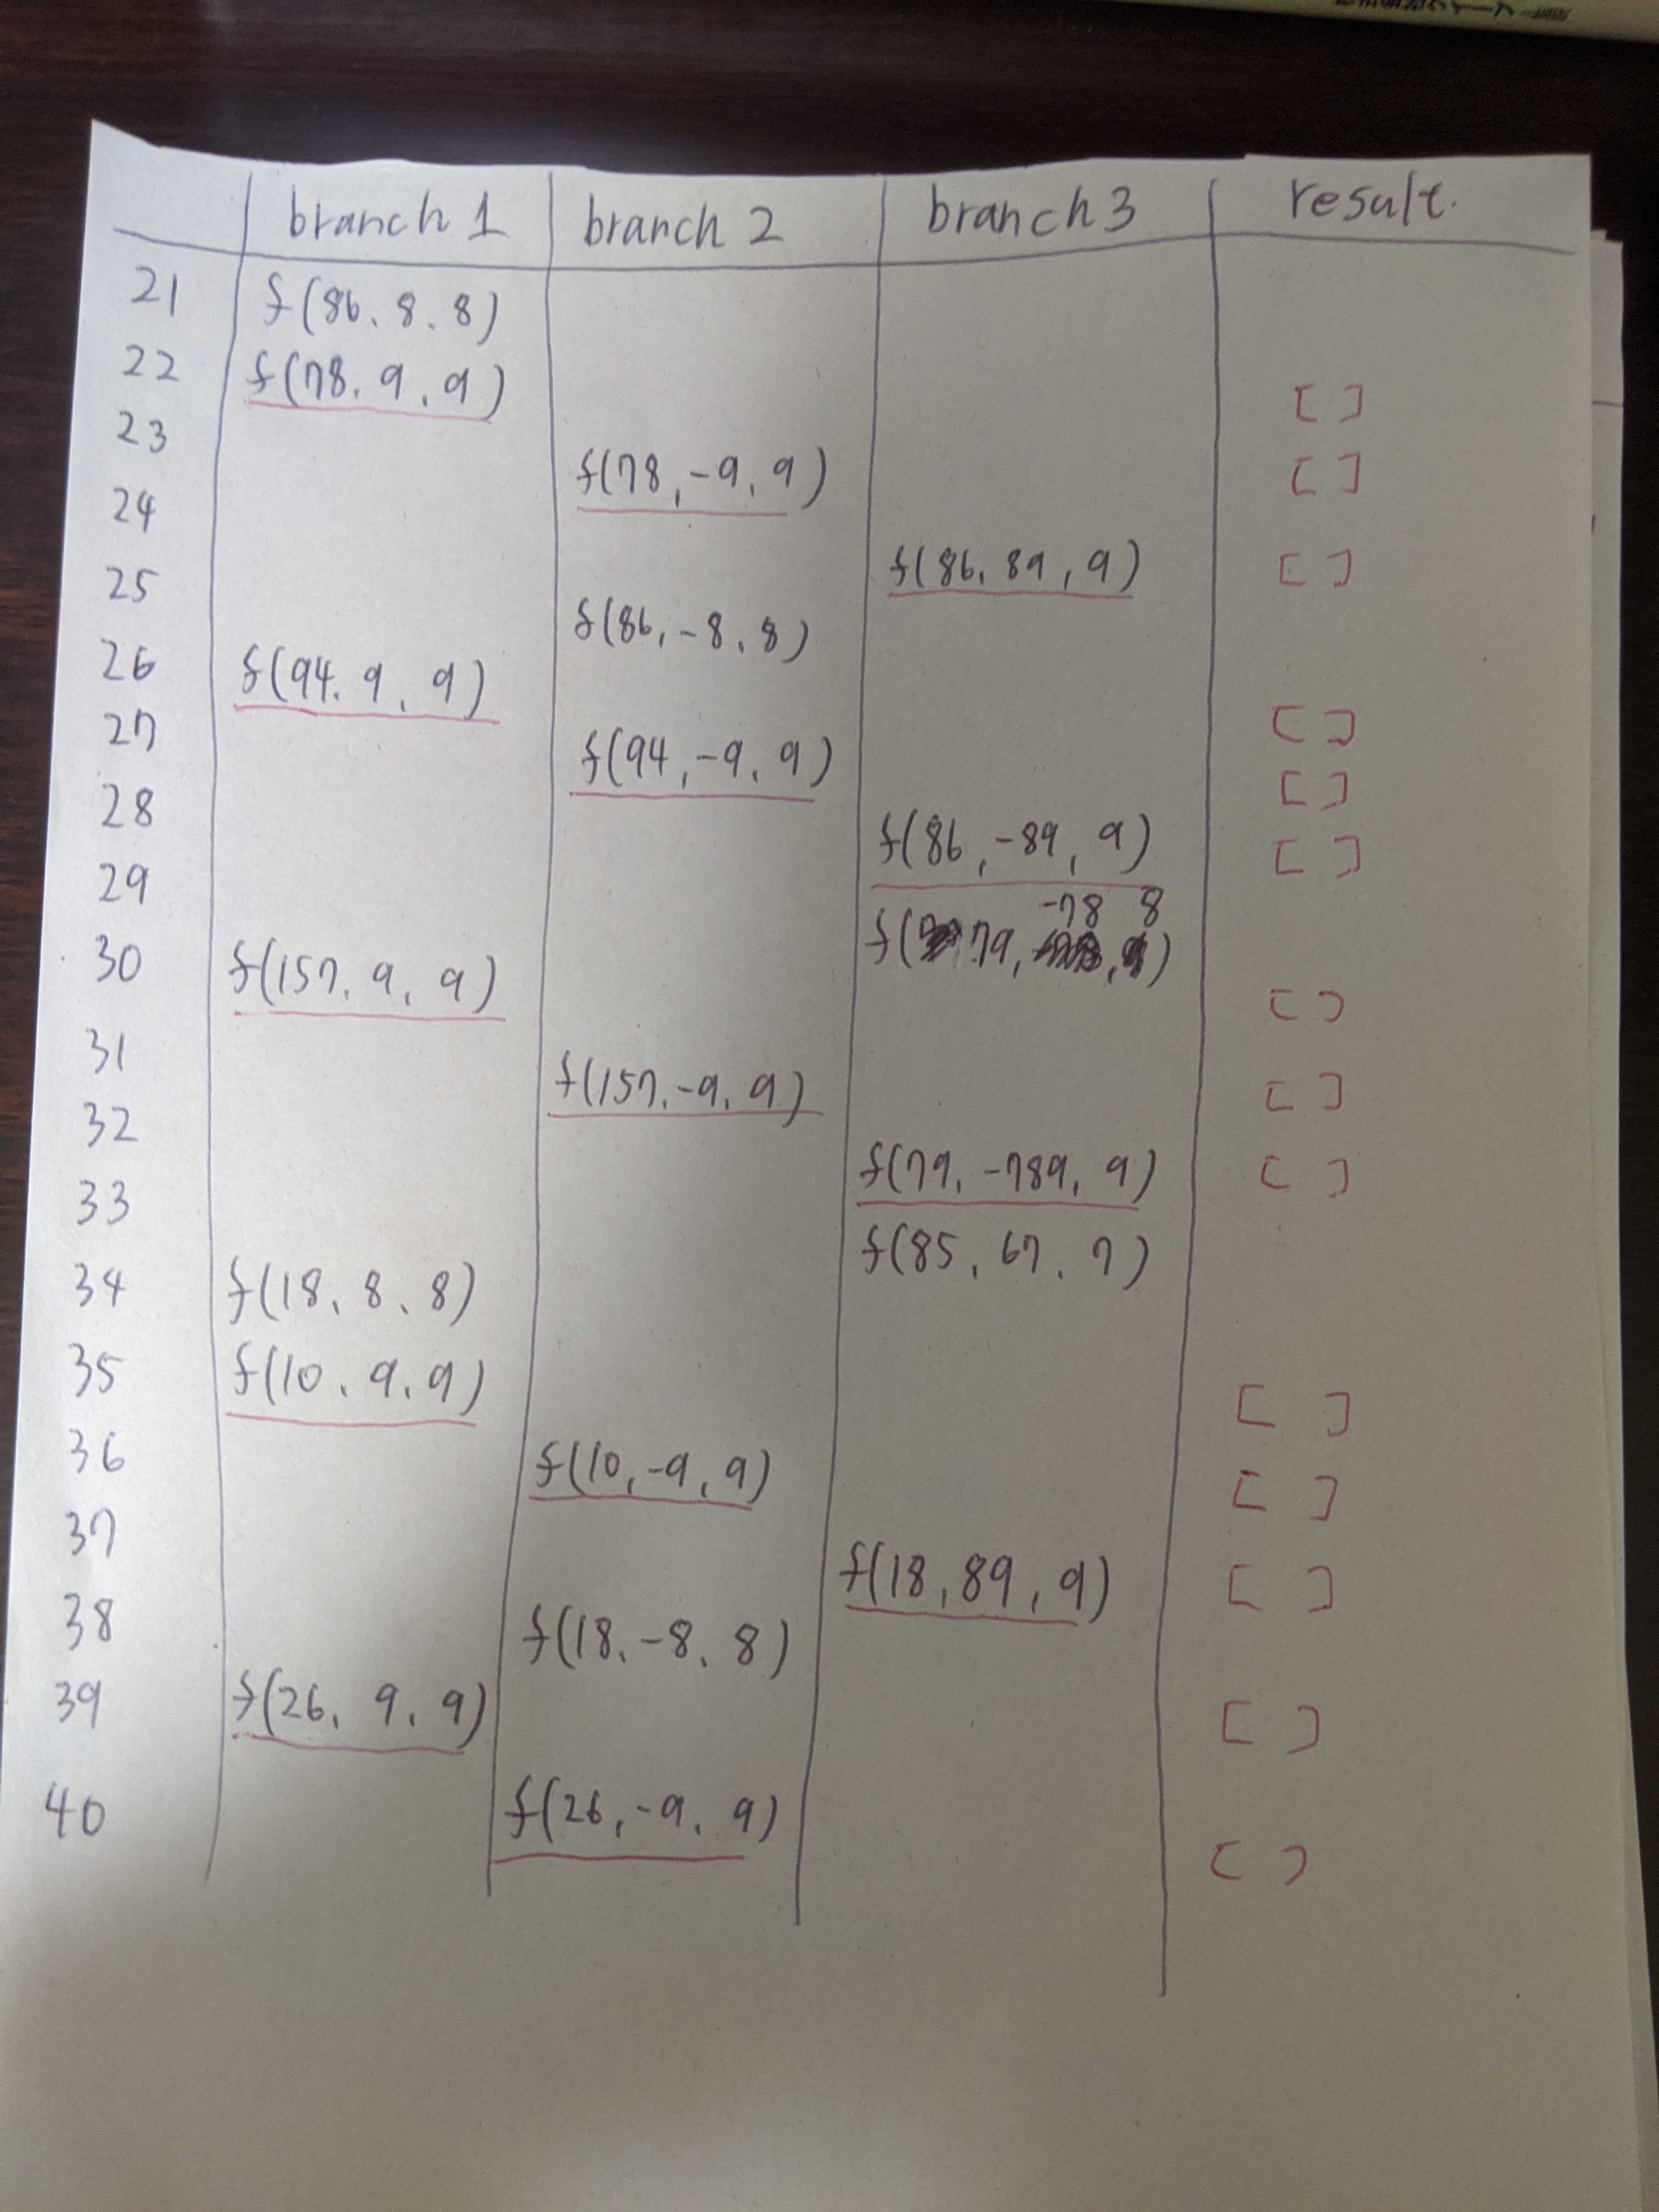 branch 1 branch 2 branch 3 result.
21 f(86, 8, 8)
22 f(78, 9, 9) [ ]
23 f(78, -9, 9) [ ]
24 f(86, 89, 9) [ ]
25 f(86, -8, 8)
26 f(94, 9, 9) [ ]
27 f(94, -9, 9) [ ]
28 f(86, -89, 9) [ ]
29 f(79, -78, 8)
30 f(157, 9, 9) [ ]
31 f(157, -9, 9) [ ]
32 f(79, -789, 9) [ ]
33 f(85, 67, 7)
34 f(18, 8, 8)
35 f(10, 9, 9) [ ]
36 f(10, -9, 9) [ ]
37 f(18, 89, 9) [ ]
38 f(18, -8, 8)
39 f(26, 9, 9) [ ]
40 f(26, -9, 9) [ ]